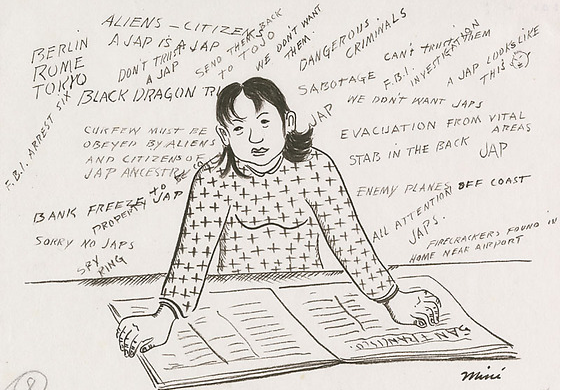 ALIENS – CITIZENS
A JAP IS A JAP
BERLIN
ROME
TOKYO
DON'T TRUST
A JAP
SEND THEM BACK
TO TOJO
WE DON'T WANT
THEM.
DANGEROUS
CRIMINALS
CAN'T TRUST THEM
F.B.I.
INVESTIGATION
A JAP LOOKS LIKE
THIS
BLACK DRAGON
SABOTAGE
JAP
WE DON'T WANT JAPS
F.B.I. ARREST SIX
CURFEW MUST BE
OBEYED BY ALIENS
AND CITIZENS OF
JAP ANCESTRY
EVACUATION FROM VITAL
AREAS
STAB IN THE BACK
JAP
BANK FREEZE JAP
PROPERTY TO BE
SORRY NO JAPS
SPY
RING
ENEMY PLANES OFF COAST
ALL ATTENTION
JAPS.
FIRECRACKERS FOUND IN
HOME NEAR AIRPORT
SAN FRANCISCO
Miné
8